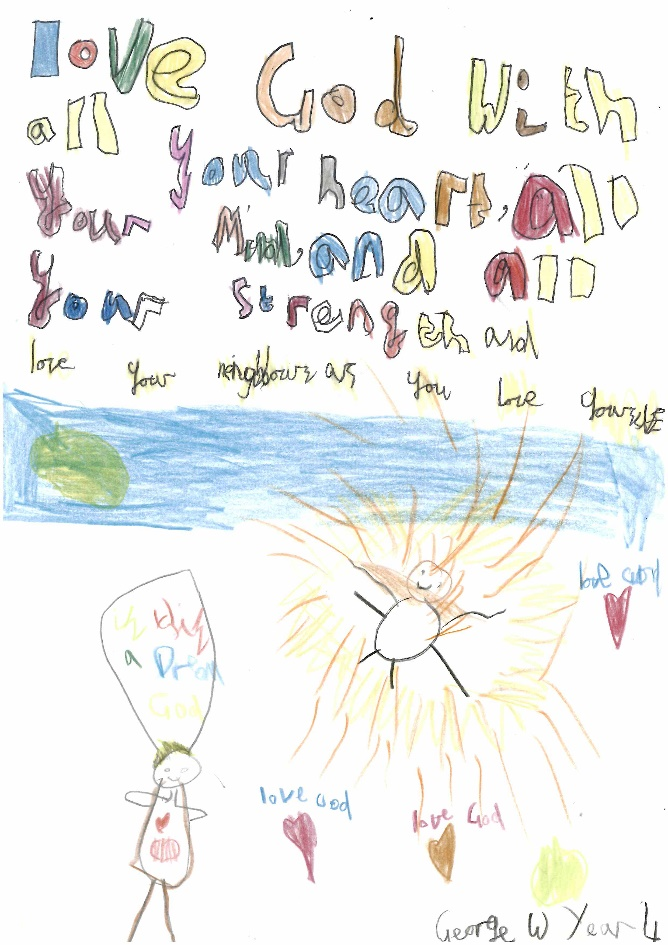 love God with
all your heart, all
your Mind, and all
your strength and
love your neighbours as you love yourself
love God
a Dream
God
love God
love God
George W Year 4